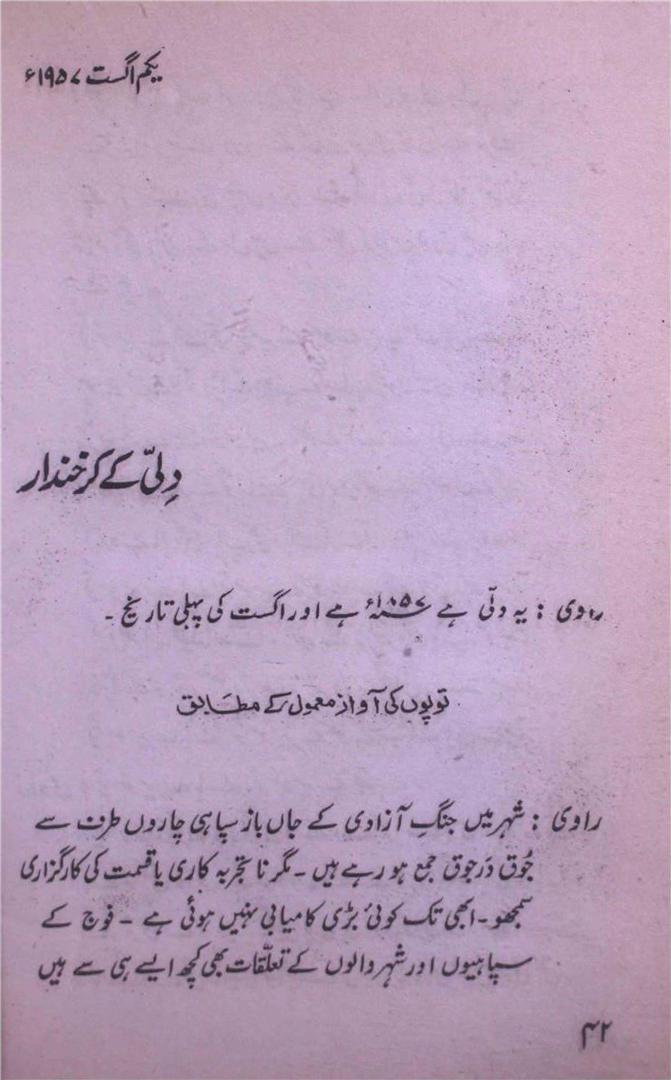 یکم اگست ۱۹۵۷ء
دِلّی کے کرخندار
راوی : یہ دلّی ہے ۱۸۵۷ء ہے اور اگست کی پہلی تاریخ ۔
توپوں کی آواز معمول کے مطابق
راوی : شہر میں جنگِ آزادی کے جاں باز سپاہی چاروں طرف سے
جُوق دَر جوق جمع ہو رہے ہیں ۔ مگر ناتجربہ کاری یا قسمت کی کارگزاری
سمجھو ۔ ابھی تک کوئی بڑی کامیابی نہیں ہوئی ہے ۔ فوج کے
سپاہیوں اور شہر والوں کے تعلّقات بھی کچھ ایسے ہی سے ہیں
۴۲